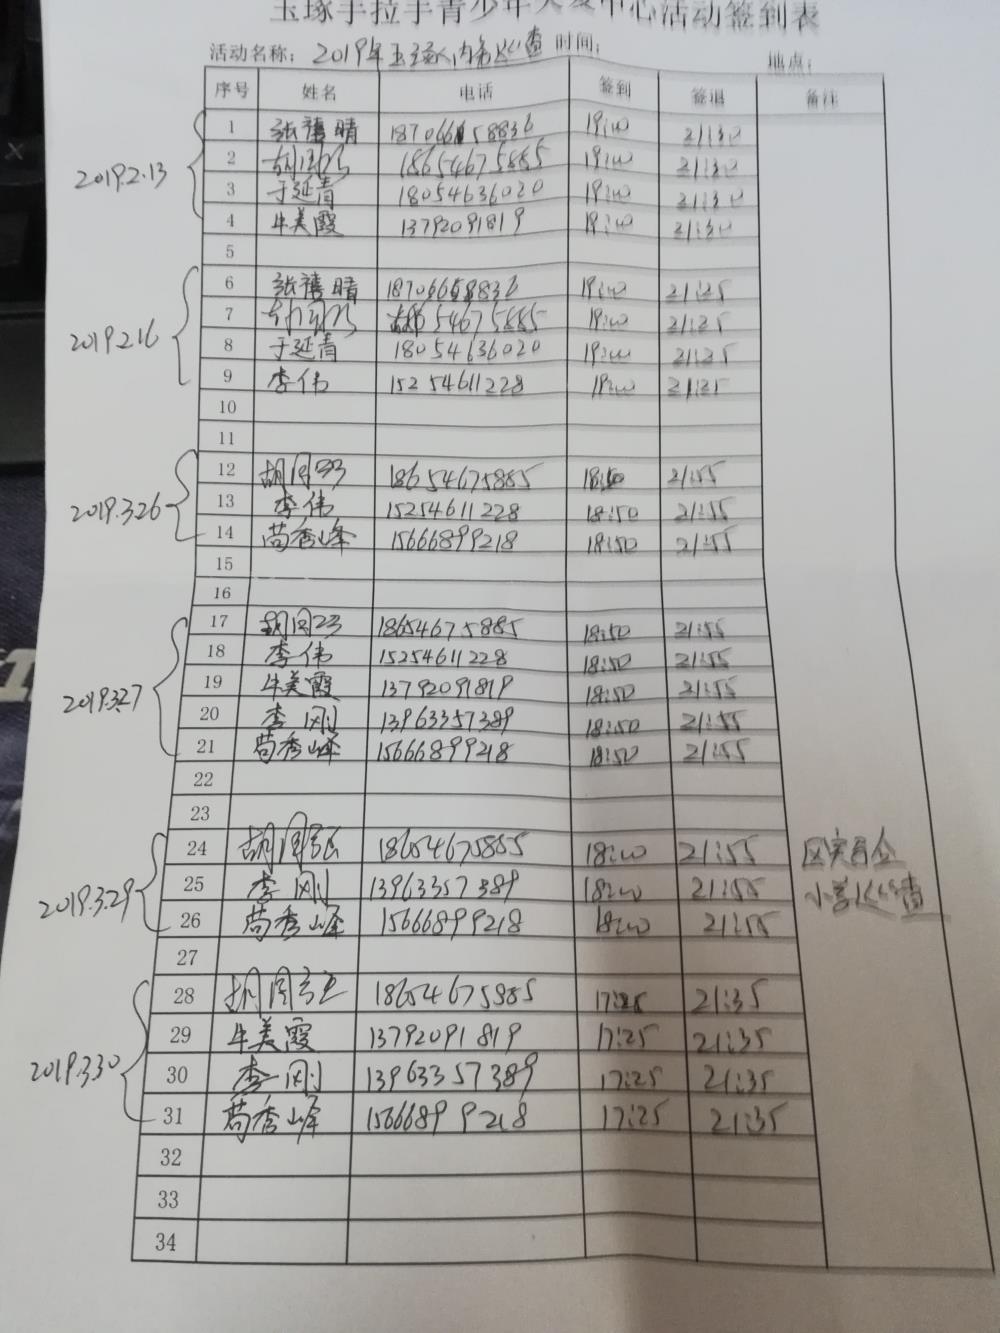 玉琢手拉手青少年 中心活动签到表
活动名称：2019年玉琢 巡查 时间： 地点：
序号 姓名 电话 签到 签退 备注
2019.2.13
1 张禧晴 18706658836 19:00 21:30
2 18654675885 19:00 21:30
3 于延青 18054636020 19:00 21:30
4 牛美霞 13792091819 19:00 21:30
5
2019.2.16
6 张禧晴 18706658836 19:00 21:25
7 54675885 19:00 21:25
8 于延青 18054636020 19:00 21:25
9 李伟 15254611228 19:00 21:25
10
11
2019.3.26
12 胡 18654675885 18:50 21:55
13 李伟 15254611228 18:50 21:55
14 苟秀峰 15666899218 18:50 21:55
15
16
2019.3.27
17 胡 18654675885 18:50 21:55
18 李伟 15254611228 18:50 21:55
19 牛美霞 13792091819 18:50 21:55
20 李刚 13963357389 18:50 21:55
21 苟秀峰 15666899218 18:50 21:55
22
23
2019.3.29
24 胡 18654675885 18:00 21:55 区实
25 李刚 13963357389 18:00 21:55 小学巡查
26 苟秀峰 15666899218 18:00 21:55
27
2019.3.30
28 胡 18654675885 17:25 21:35
29 牛美霞 13792091819 17:25 21:35
30 李刚 13963357389 17:25 21:35
31 苟秀峰 15666899218 17:25 21:35
32
33
34